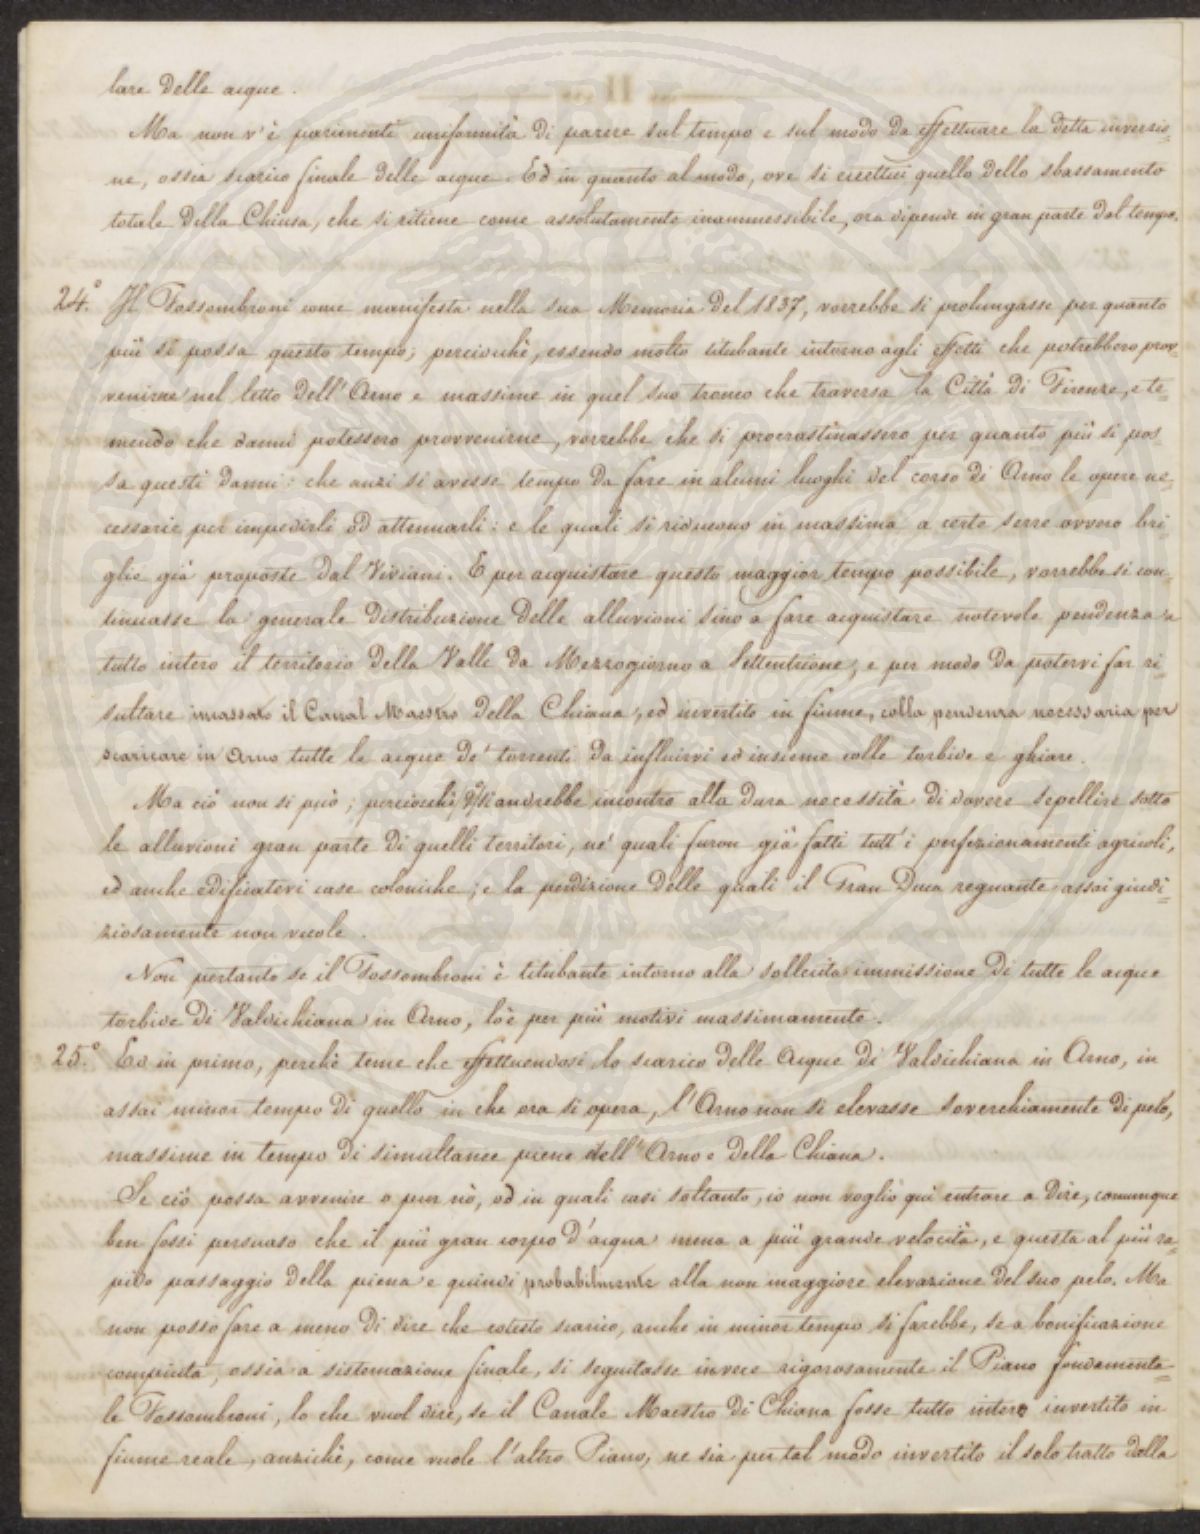 lare delle acque.
Ma non v'è parimente uniformità di parere sul tempo e sul modo da effettuare la detta inversio=
ne, ossia scarico finale delle acque. Ed in quanto al modo, ove si eccettui quello dello sbassamento
totale della Chiusa, che si ritiene come assolutamente inammessibile, ora dipende in gran parte dal tempo.
24.° Il Fossombroni come manifesta nella sua Memoria del 1837, vorrebbe si prolungasse per quanto
più si possa questo tempo; perciocchè, essendo molto titubante intorno agli effetti che potrebbero prov=
venirne nel letto dell'Arno e massime in quel suo tronco che traversa la Città di Firenze, e te=
mendo che danni potessero provvenirne, vorrebbe che si procrastinassero per quanto più si pos=
sa questi danni: che anzi si avesse tempo da fare in alcuni luoghi del corso di Arno le opere ne=
cessarie per impedirli od attenuarli: e le quali si riducono in massima a certe serre ovvero bri=
glie già proposte dal Viviani. E per acquistare questo maggior tempo possibile, vorrebbe si con=
tinuasse la generale distribuzione delle alluvioni sino a fare acquistare notevole pendenza a
tutto intero il territorio della Valle da Mezzogiorno a Settentrione, e per modo da potervi far ri=
sultare incassato il Canal Maestro della Chiana, ed invertito in fiume, colla pendenza necessaria per
scaricare in Arno tutte le acque de' torrenti da influirvi ed insieme colle torbide e ghiare.
Ma ciò non si può; perciocchè, si andrebbe incontro alla dura necessità di dovere sepellire sotto
le alluvioni gran parte di quelli territori, ne' quali furon già fatti tutt'i perfezionamenti agricoli,
ed anche edificatevi case coloniche; e la perdizione delle quali il Gran Duca regnante assai giudi=
ziosamente non vuole.
Non pertanto se il Fossombroni è titubante intorno alla sollecita immissione di tutte le acque
torbide di Valdichiana in Arno, lo è per più motivi massimamente.
25.° Ed in primo, perchè teme che effettuendosi lo scarico delle Acque di Valdichiana in Arno, in
assai minor tempo di quello in che ora si opera, l'Arno non si elevasse soverchiamente di pelo,
massime in tempo di simultanee piene dell'Arno e della Chiana.
Se ciò possa avvenire o pur nò, od in quali casi soltanto, io non voglio quì entrare a dire, comunque
ben fossi persuaso che il più gran corpo d'acqua mena a più grande velocità, e questa al più ra=
pido passaggio della piena e quindi probabilmente alla non maggiore elevazione del suo pelo. Ma
non posso fare a meno di dire che cotesto scarico, anche in minor tempo si farebbe, se a bonificazione
compiuta, ossia a sistemazione finale, si seguitasse invece rigorosamente il Piano fondamenta=
le Fossombroni, lo che vuol dire, se il Canale Maestro di Chiana fosse tutto intero invertito in
fiume reale, anzichè, come vuole l'altro Piano, ne sia per tal modo invertito il solo tratto dalla